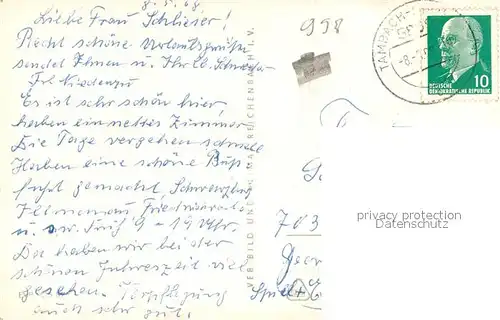 8.5.68.
Liebe Frau Schlieser!
Recht schöne Urlaubsgrüße
sendet Ihnen u. Ihr lb. Schwester
Frl.
Es ist sehr schön hier
haben ein nettes Zimmer
Die Tage vergehen schnell
Haben eine schöne Bus
fahrt gemacht Schwarzburg
Ilmenau, Friedrichroda
u. s w. früh 9 - 19 Uhr.
Da haben wir bei der
schönen Jahreszeit viel
gesehen. Verpflegung
auch sehr gut.
998
TAMBACH-
DEUTSCHE
DEMOKRATISCHE REPUBLIK
10
VEB BILD UND REICHENBACH I. V.
703
privacy protection
Datenschutz